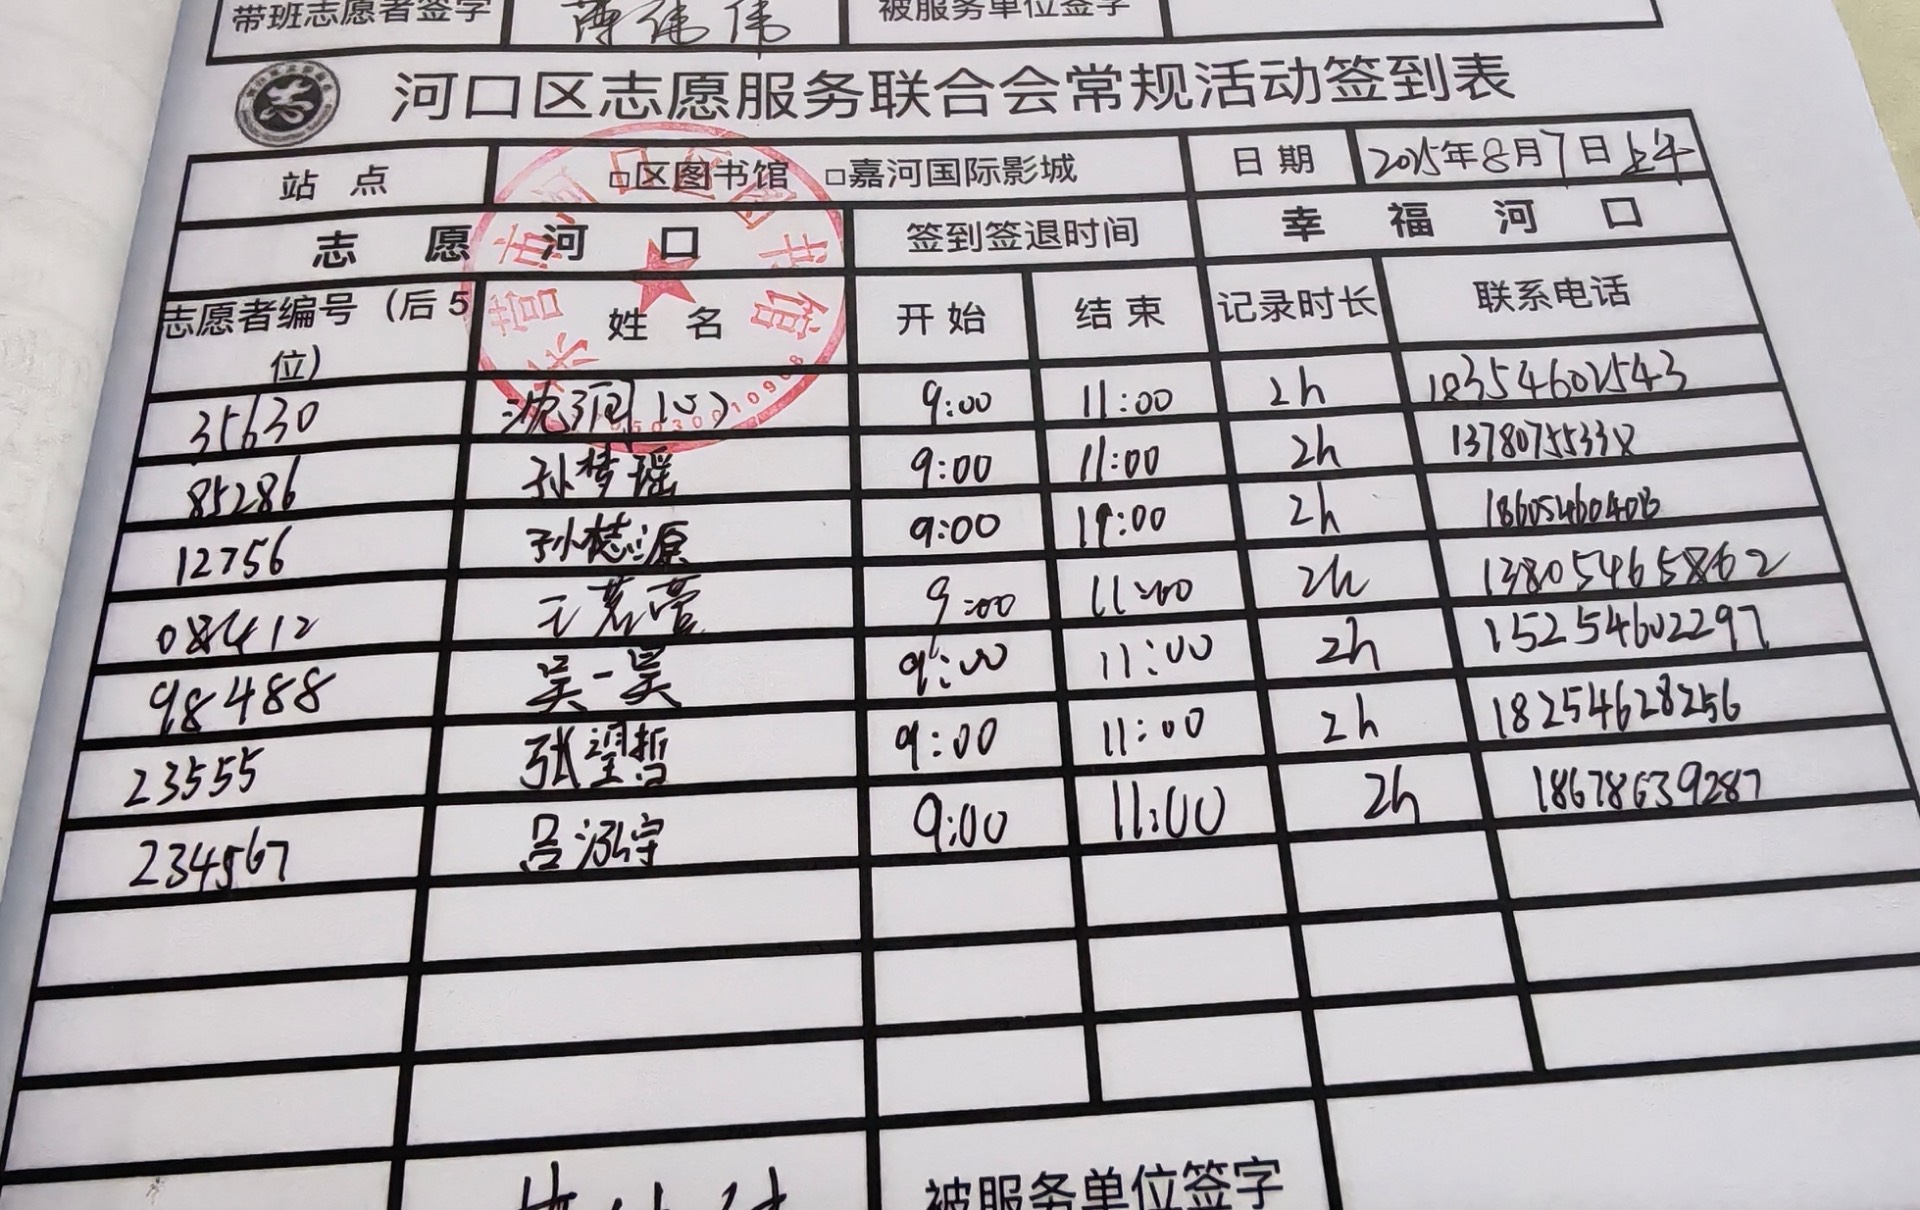 带班志愿者签字 薄纯伟 被服务单位签字
河口区志愿服务联合会常规活动签到表
站 点 □区图书馆 □嘉河国际影城 日 期 2025年8月7日上午
志 愿 河 口 签到签退时间 幸 福 河 口
志愿者编号（后5位） 姓 名 开 始 结 束 记录时长 联系电话
35630 9:00 11:00 2h 18354602543
85286 孙梦瑶 9:00 11:00 2h
12756 9:00 11:00 2h
08412 9:00 11:00 2h 13805465862
98488 吴一昊 9:00 11:00 2h 15254602297
23555 张望哲 9:00 11:00 2h 18254628256
234567 吕泓宇 9:00 11:00 2h 18678639287
被服务单位签字